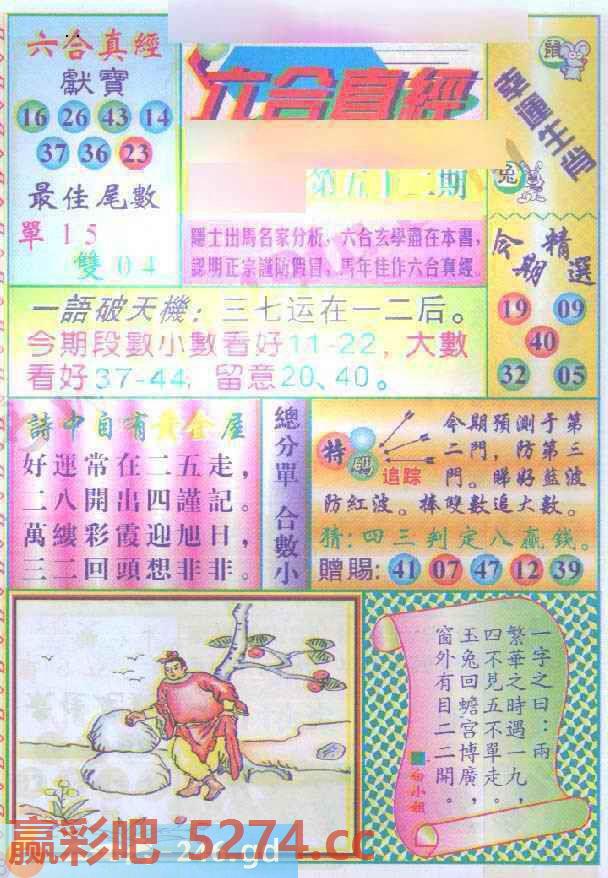 六合真經
獻寶
16 26 43 14
37 36 23
最佳尾數
單 15
雙 04
六合真經
第五十二期
隱士出馬名家分析,六合玄學盡在本書,
認明正宗謹防假冒,馬年佳作六合真經。
鼠
幸運生肖
兔
今期
精選
19 09
40
32 05
一語破天機:三七运在一二后。
今期段數小數看好11-22,大數
看好37-44,留意20、40。
詩中自有黃金屋
好運常在二五走,
二八開出四謹記。
萬縷彩霞迎旭日,
三二回頭想非非。
總分單 合數小
特碼追踪
今期預測于第
二門,防第三
門。睇好藍波
防紅波。捧雙數追大數。
猜:四三判定八贏錢。
贈賜: 41 07 47 12 39
一字之曰:兩
繁華之時遇一九,
四不見五不單走。
玉兔回蟾宮博廣,
窗外有目二二開。
小姐
赢彩吧 5274.cc